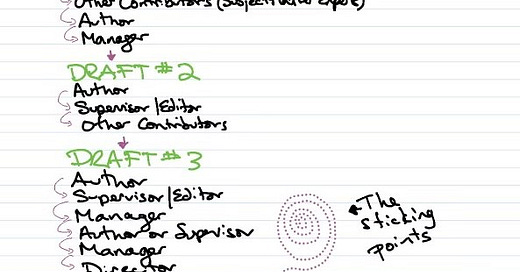 Other Contributors (Subject Matter Experts)
Author
Manager
DRAFT #2
Author
Supervisor/Editor
Other Contributors
DRAFT #3
Author
Supervisor/Editor
Manager
Author or Supervisor
Manager
Director
The
sticking
points